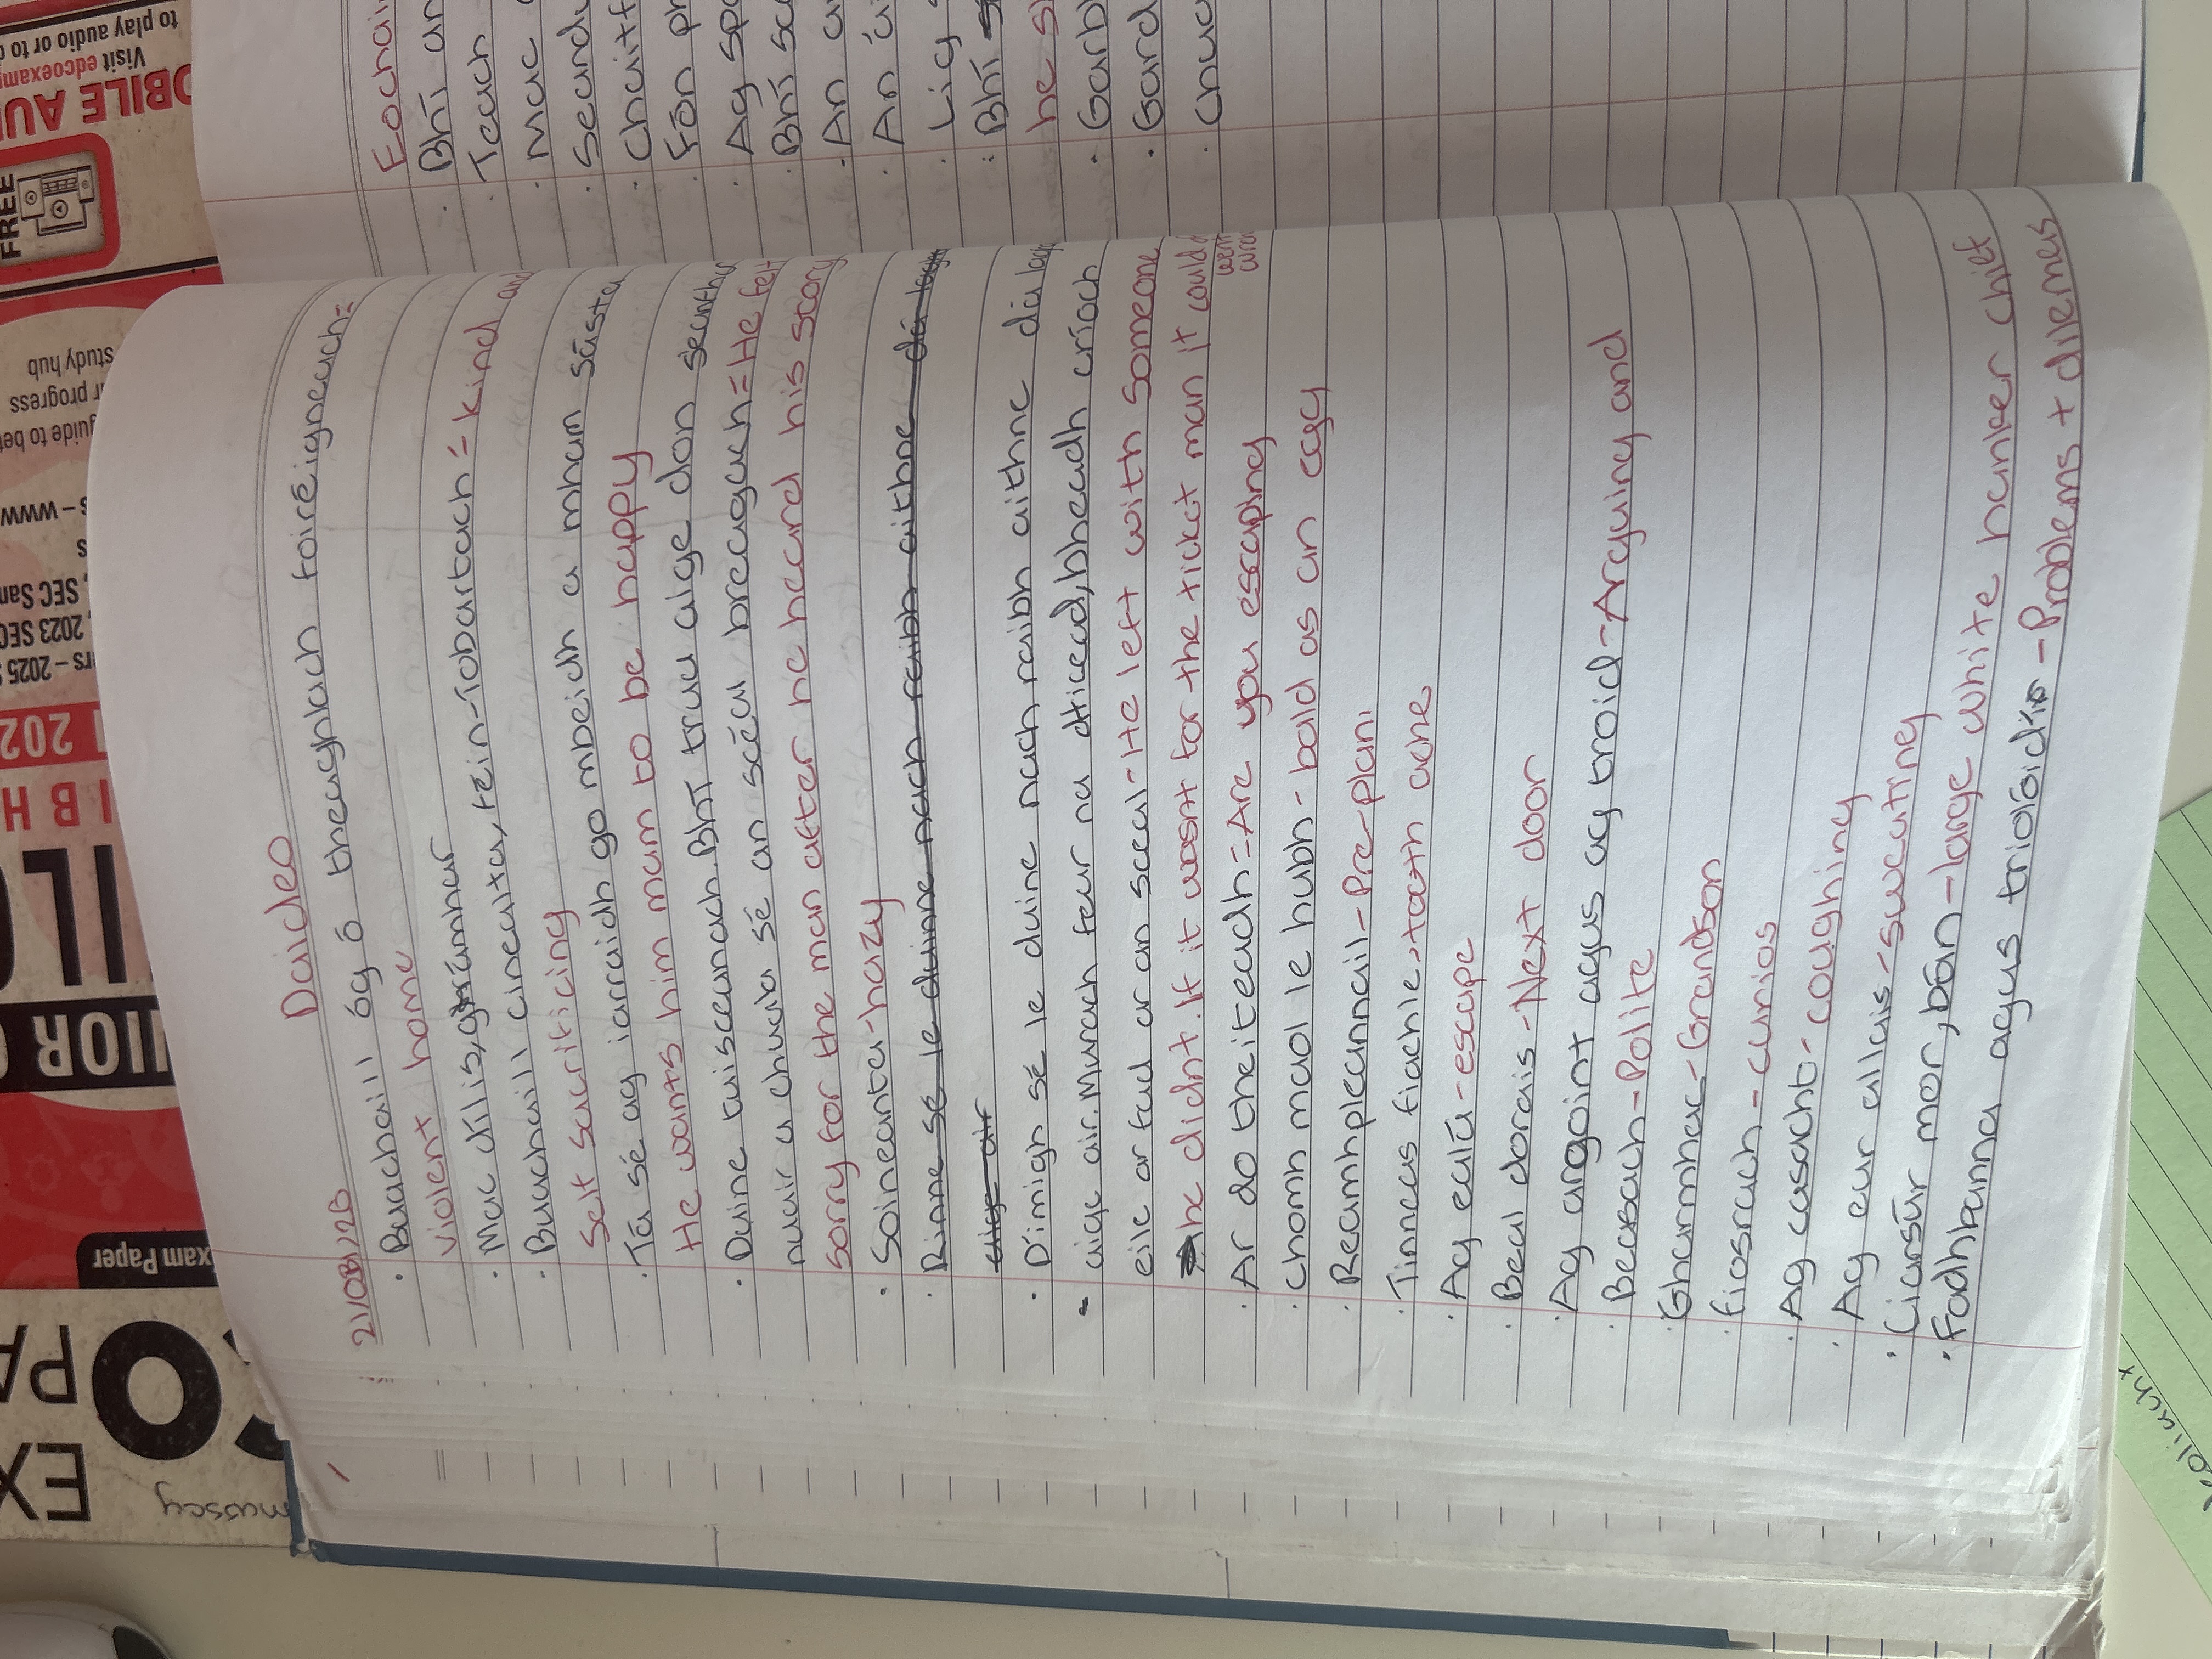 Daideo
21/08/25
· Buachaill óg ó theaghlach foiréigneach=
violent home
· Mac dílis, grámhar
· Buachaill cineálta, féin-íobartach = kind and
Self sacrificing
· Tá sé ag iarraidh go mbeidh a mham sásta
He wants him mam to be happy
· Duine tuisceanach. Bhí trua aige don seanth
nuair a chuala sé an scéal breagach = He felt
sorry for the man after he heard his story
· Soineanta - hazy
Rinne sé le duinne nach raibh aithne
aige air
· D'imigh sé le duine nach raibh aithne dá lag
aige air. Murach fear na dticead, bheadh críoch
eile ar fad ar an sceal - He left with someone
he didnt. If it wasnt for the ticket man it could
· Ar do theiteadh = Are you escaping
· Chomh maol le hubh - bald as an egg
· Reamhpleannail - Pre-plan.
· Tinneas fiachle - tooth ache
· Ag ealú - escape
· Beal dorais - Next door
· Ag argoint agus ag troid - Arguing and
· Beasach - Polite
· Gharmhac - Grandson
· fiosrach - curios
· Ag casacht - coughing
· Ag cur allais - sweating
· Ciarsúr mor, bán - large white hanker chief
· Fadhbanna agus trioblóidí - Problems + dilemas
Eochair
Bhí an
· Teach
· Mac
· Seandu
· Chaithf
· Fón ph
· Ag spo
· Bhí sc
· An a
· An ái
· Lig
: Bhí
he s
· Garb
· Gard
· Cnuc
FREE
OBILE AU
Visit edcoexam
to play audio or to
study hub
r progress
guide to be
s – www
s
, SEC Sam
, 2023 SEC
rs – 2025 S
202
I B H
IL
NIOR
xam Paper
EX
PA